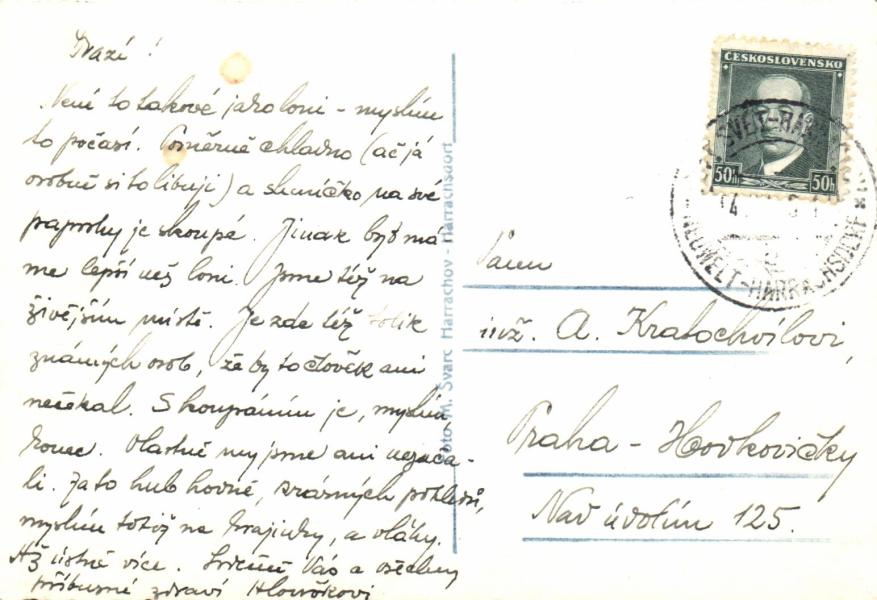 Drazí!
Není to takové jako loni - myslím
to počasí. Poměrně chladno (ač já
osobně si to libuji) a sluníčko na své
paprsky je skoupé. Jinak byt má
me lepší než loni. Jsme též na
živějším místě. Je zde též tolik
známých osob, že by to člověk ani
nečekal. S koupáním je, myslím
konec. Vlastně my jsme ani nezača-
li. Zato hub hovně, krásných pohledů,
myslím totiž na krajinky, a vláhy.
Až ústně více. Srdečně Vás a všechny
příbuzné zdraví
Foto M. Švarc Harrachov - Harrachsdorf
ČESKOSLOVENSKO
50h 50h
NEUWELT-HARRACHSDORF
Panu
inž. A. Kratochvílovi,
Praha - Hodkovičky
Nad úvozím 125.